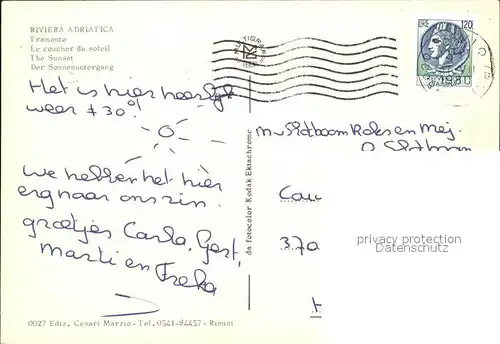 RIVIERA ADRIATICA
Tramonto
Le coucher du soleil
The Sunset
Der Sonnenuntergang
Het is hier heerlijk
weer ± 30°
We hebben het hier
erg naar ons zin.
groetjes Carla, Gert,
Marti en Freka
0027 Ediz. Cesari Marzio - Tel. 0541-84457 - Rimini
da fotocolor Kodak Ektachrome
MULTIGRAF
LIRE 120
1980
en Mej.
370
privacy protection
Datenschutz